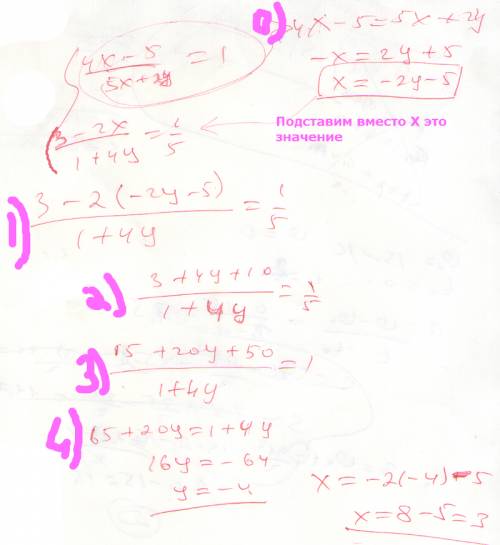 0) 4x - 5 = 5x + 2y
-x = 2y + 5
x = -2y - 5
(4x - 5)/(5x + 2y) = 1
(3 - 2x)/(1 + 4y) = 1/5
Подставим вместо X это
значение
1) (3 - 2(-2y - 5))/(1 + 4y) = 1/5
2) (3 + 4y + 10)/(1 + 4y) = 1/5
3) (15 + 20y + 50)/(1 + 4y) = 1
4) 65 + 20y = 1 + 4y
16y = -64
y = -4
x = -2(-4) - 5
x = 8 - 5 = 3